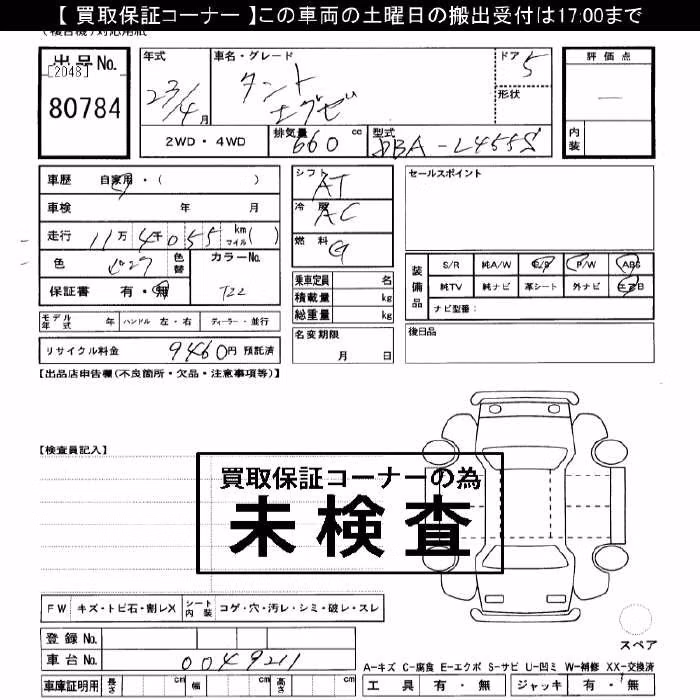 【 買取保証コーナー 】この車両の土曜日の搬出受付は17:00まで
出品No.
[2048]
80784
年式
23/4月
車名・グレード
タント
エグゼ
ドア 5
形状
評価点
内装
2WD・4WD
排気量 660 cc
型式 DBA-L455S
車歴 自家用・( )
車検 年 月
走行 11万4千055 km マイル( )
色
色替
カラーNo.
T22
保証書 有・無
モデル年式 年 ハンドル 左・右 ディーラー・並行
リサイクル料金 9460円 預託済
シフト AT
冷房 AC
燃料 G
乗車定員 名
積載量 kg
総重量 kg
名変期限
月 日
セールスポイント
装備品
S/R 純A/W P/S P/W ABS
純TV 純ナビ 革シート 外ナビ エアB
ナビ型番:
後日品
【出品店申告欄(不良箇所・欠品・注意事項等)】
【検査員記入】
買取保証コーナーの為
未検査
FW キズ・トビ石・割レX シート内装 コゲ・穴・汚レ・シミ・破レ・スレ
登録No.
車台No. 0049211
車庫証明用 長さ cm 幅 cm 高さ cm
スペア
A-キズ C-腐食 E-エクボ S-サビ U-凹ミ W-補修 XX-交換済
工具 有・無 ジャッキ 有・無